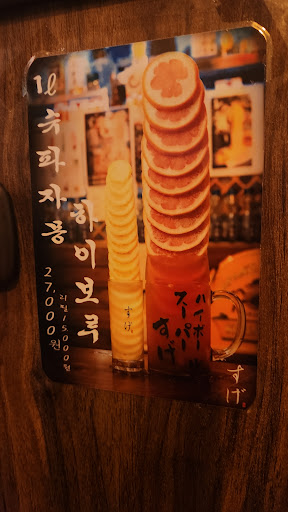 1ℓ 슈파자몽
하이보루
27,000원
리필 15,000원
すげ
ハイボー
スーパー
すげ
すげ